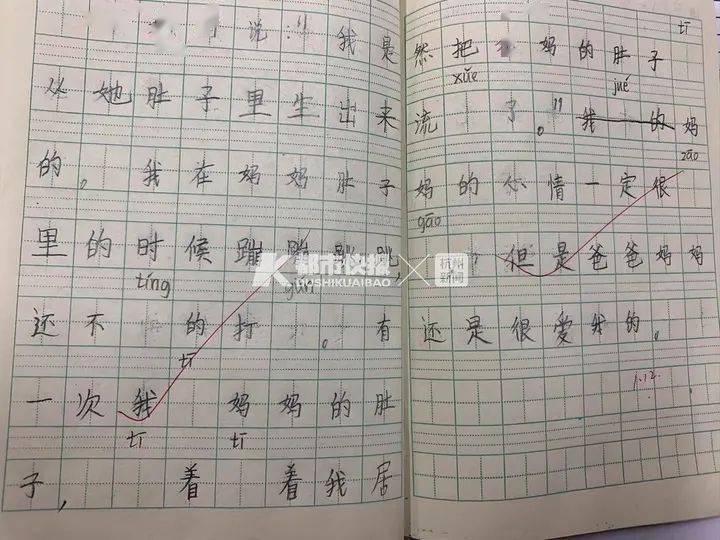 说：“我是
从她肚子里生出来
的。我在妈妈肚子
里的时候蹦蹦跳跳，
tíng
还不 的打 。有
tī
一次我 妈妈的肚
tī tī
子， 着 着我居
tī
然把 妈的肚子
xüe jué
流 了。”我的妈
zāo
妈的心情一定很
gāo
但是爸爸妈妈
还是很爱我的。
1.12.
都市快报 × 杭州新闻
DUSHIKUAIBAO